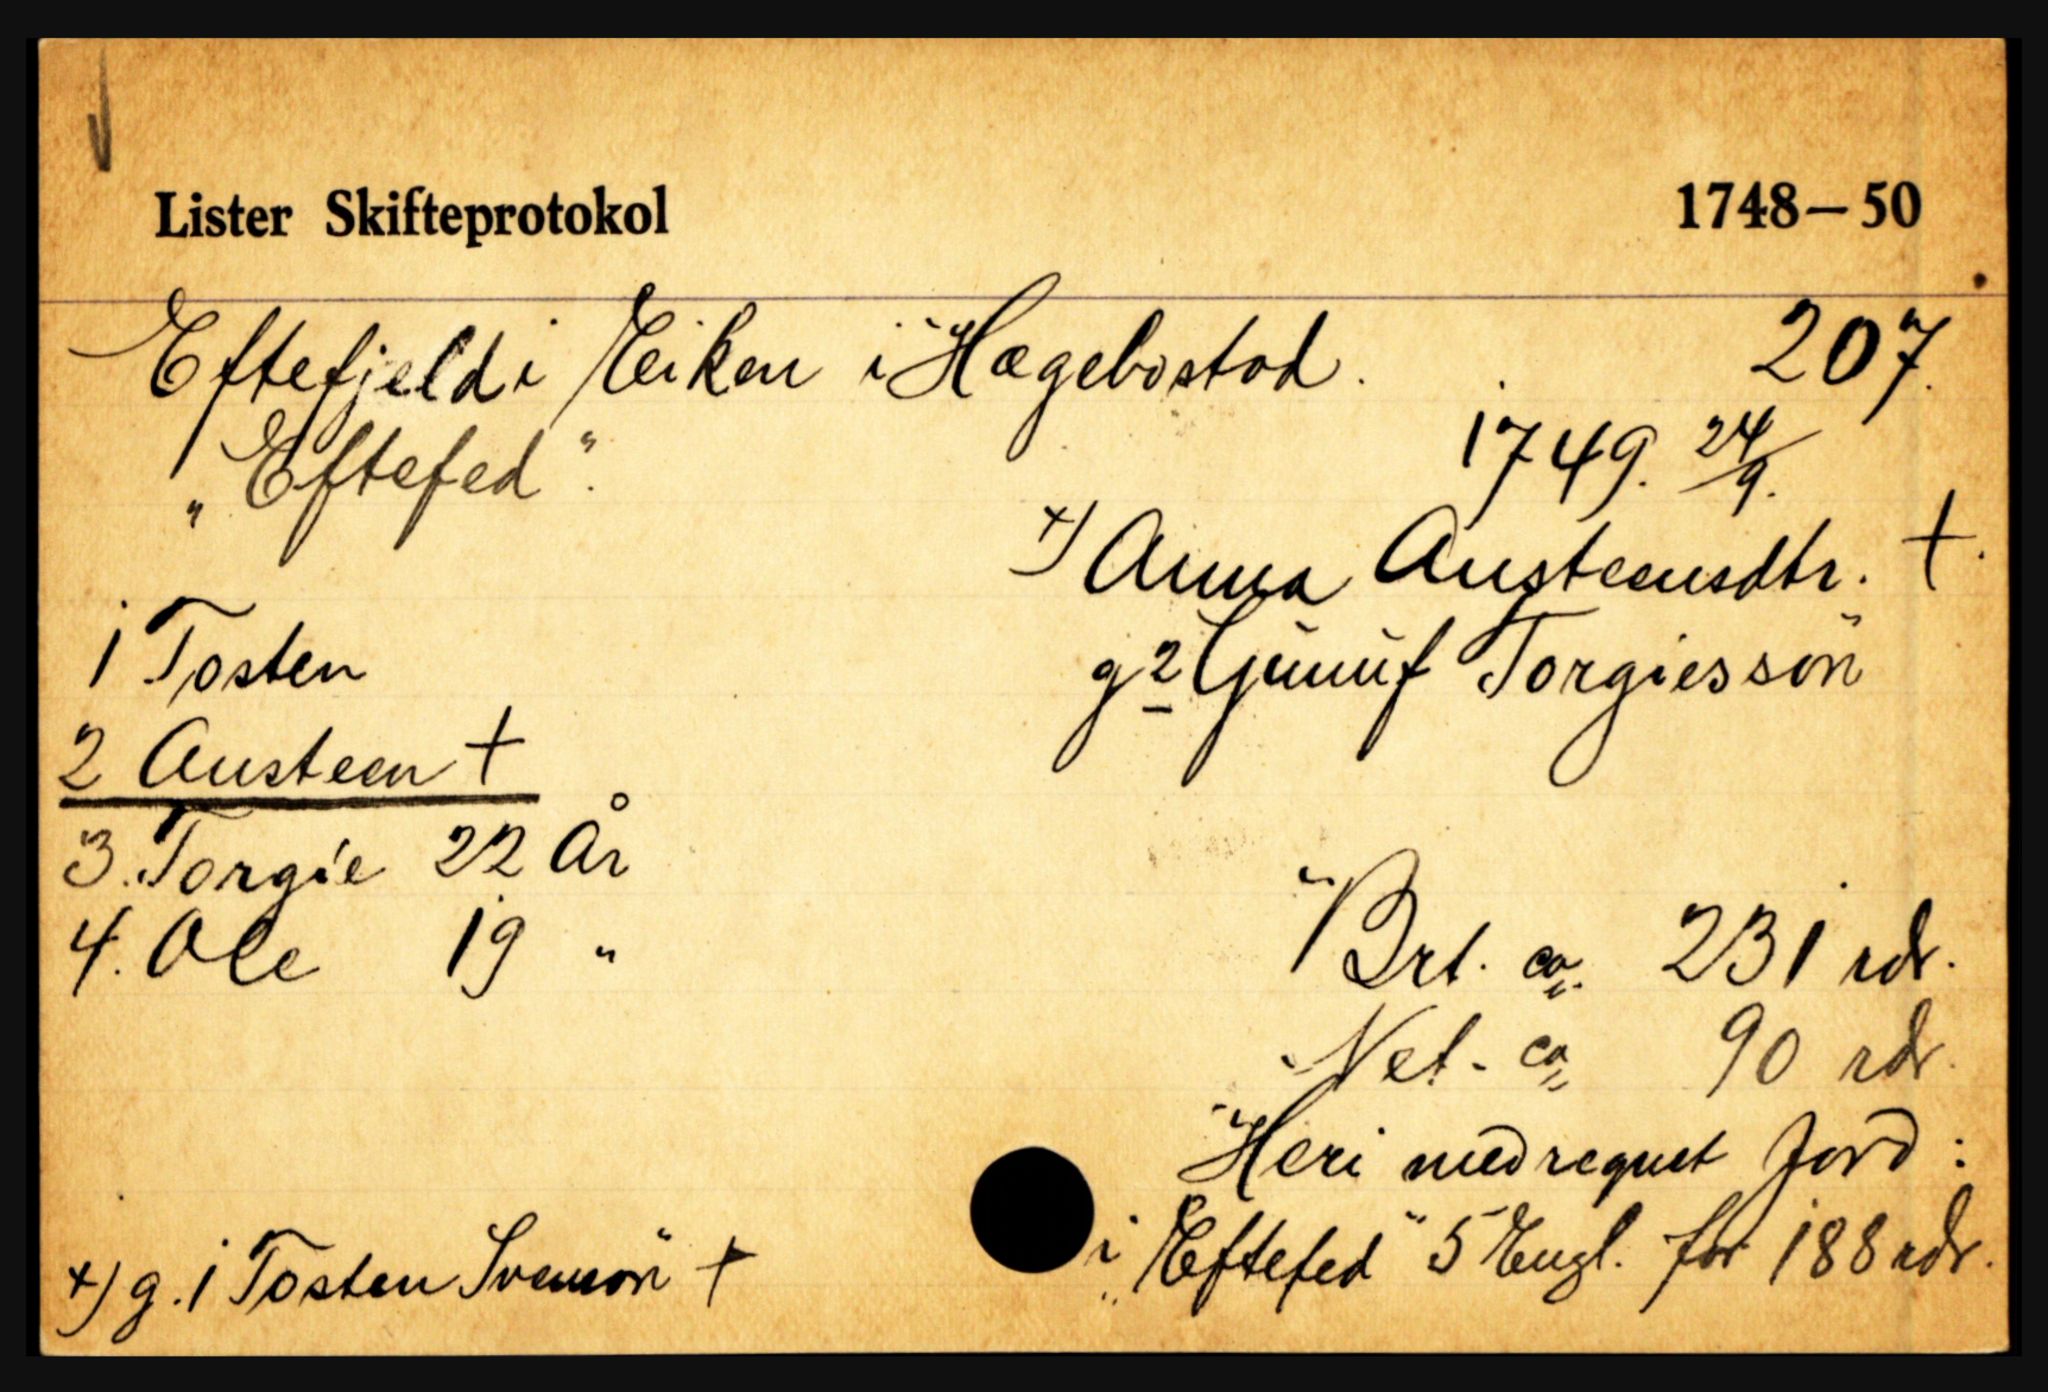 Lister Skifteprotokol 1748–50
Eftefjeld i Eiken i Hægebostad. 207.
„Eftefed“. 1749. 24/9.
x) Anna Austeensdtr. †.
1 Tosten g 2 Gunuf Torgiessön
2 Austeen †
3. Torgie 22 År
4. Ole 19 "
Brt. ca. 231 rdr.
Net. ca. 90 rdr.
Heri medregnet Jord:
i „Eftefed“ 5 Engl. for 188 rdr.
x) g. 1 Tosten Svensön †